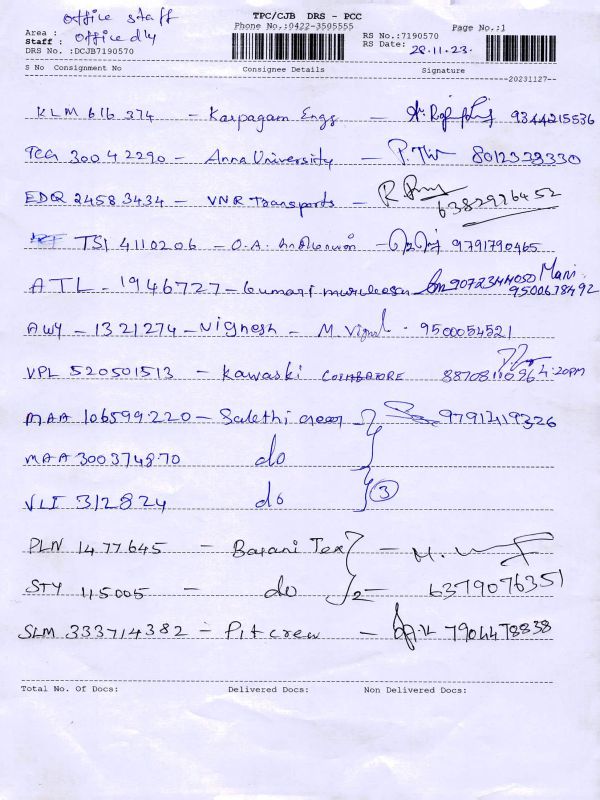 TPC/CJB DRS - PCC
office staff
Phone No.:0422-3505555
Page No.:1
Area :
Staff : office dly
RS No.:7190570
RS Date: 28.11.23.
DRS No. :DCJB7190570
S No Consignment No Consignee Details Signature
20231127--
KLM 616 374 - Karpagam Engg - 9344215536
300 4 2290 - Anna University - 8012333330
EDQ 24583434 - VNR Transports - 6382926452
TSI 4110206 - O.A. - 9791790465
ATL - 1946727 - Kumari murukesan 9072344050 Mani 9500678492
AWY - 1321274 - Vignesh - M. Vignesh - 9500054521
VPL 520501513 - Kawaski COIMBATORE 8870811096 4:20PM
MAA 106599220 - Salethi 9791419326
MAA 300374870 do
VLI 312824 do 3
PLN 1477645 - Barani Tex - M.
STY 115005 - do 2 - 6379076351
SLM 333714382 - Pit crew - 7904478838
Total No. Of Docs: Delivered Docs: Non Delivered Docs: